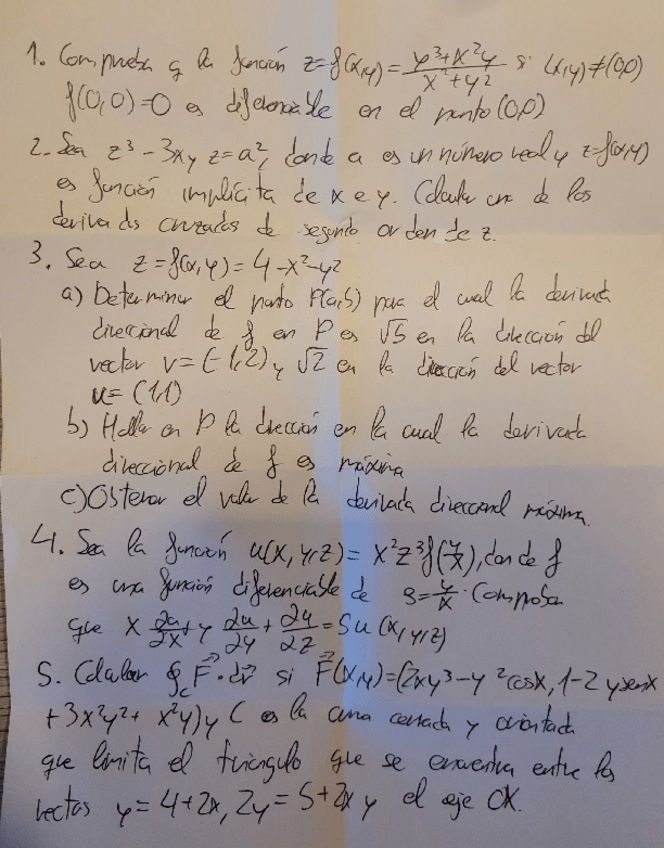 1. Comprueba q la función z=f(x,y)= (y³+x²y)/(x²+y²) si (x,y)≠(0,0)
f(0,0)=0 es diferenciable en el punto (0,0)
2. Sea z³-3xyz=a², donde a es un número real y z=f(x,y)
es función implícita de x e y. Calcula una de las
derivadas cruzadas de segundo orden de z.
3. Sea z=f(x,y)=4-x²-y²
a) Determinar el punto P(a,b) para el cual la derivada
direccional de f en P es √5 en la dirección del
vector v=(-1,2) y √2 en la dirección del vector
u=(1,1)
b) Hallar en P la dirección en la cual la derivada
direccional de f es máxima
c) Obtener el valor de la derivada direccional máxima.
4. Sea la función u(x,y,z)=x²z³f(y/x), donde f
es una función diferenciable de s=y/x. Comprobar
que x ∂u/∂x+y ∂u/∂y+ ∂u/∂z=5u(x,y,z)
5. Calcular ∮c F⃗·dr⃗ si F⃗(x,y)=(2xy³-y²cosx, 1-2ysenx
+3x²y²+x²y) y C es la curva cerrada y orientada
que limita el triángulo que se encuentra entre las
rectas y=4+2x, 2y=5+2x y el eje OX.